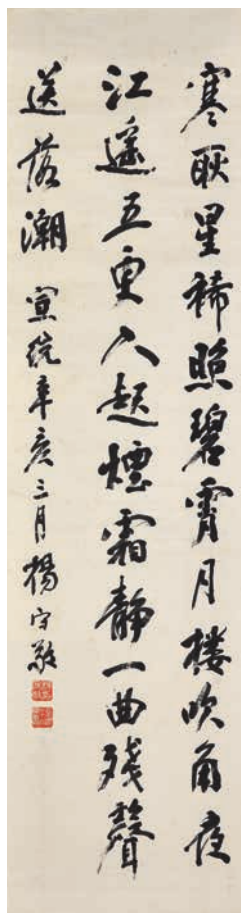 寒耿星稀照碧霄月楼吹角夜
江遥五更人起煙霜静一曲残聲
送落潮 宣統辛亥三月楊守敬